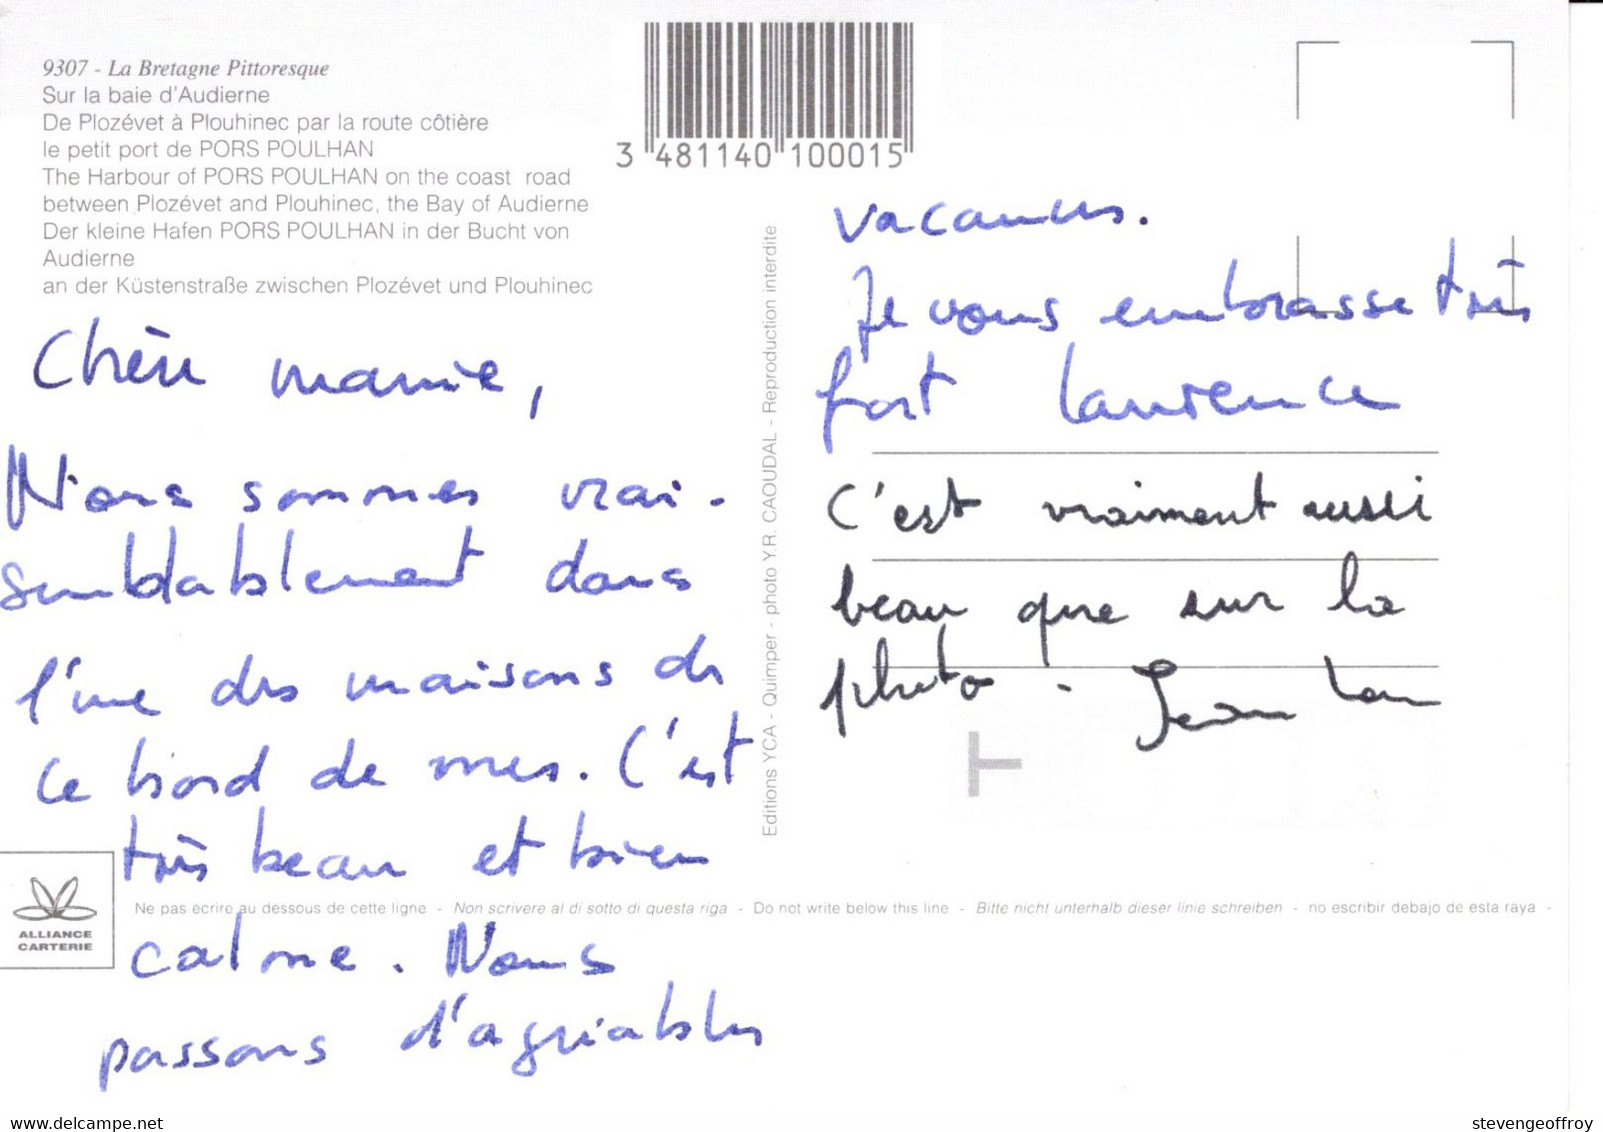 9307 - La Bretagne Pittoresque
Sur la baie d'Audierne
De Plozévet à Plouhinec par la route côtière
le petit port de PORS POULHAN
The Harbour of PORS POULHAN on the coast road
between Plozévet and Plouhinec, the Bay of Audierne
Der kleine Hafen PORS POULHAN in der Bucht von
Audierne
an der Küstenstraße zwischen Plozévet und Plouhinec
3 481140 100015
Chère mamie,
Nous sommes vrai-
semblablement dans
l'une des maisons de
ce bord de mer. C'est
très beau et bien
calme. Nous
passons d'agréables
Editions YCA - Quimper - photo Y.R. CAOUDAL - Reproduction interdite
vacances.
Je vous embrasse très
fort Laurence
C'est vraiment aussi
beau que sur la
photo. Jean Lou
ALLIANCE
CARTERIE
Ne pas écrire au dessous de cette ligne - Non scrivere al di sotto di questa riga - Do not write below this line - Bitte nicht unterhalb dieser linie schreiben - no escribir debajo de esta raya -
delcampe.net
stevengeoffroy